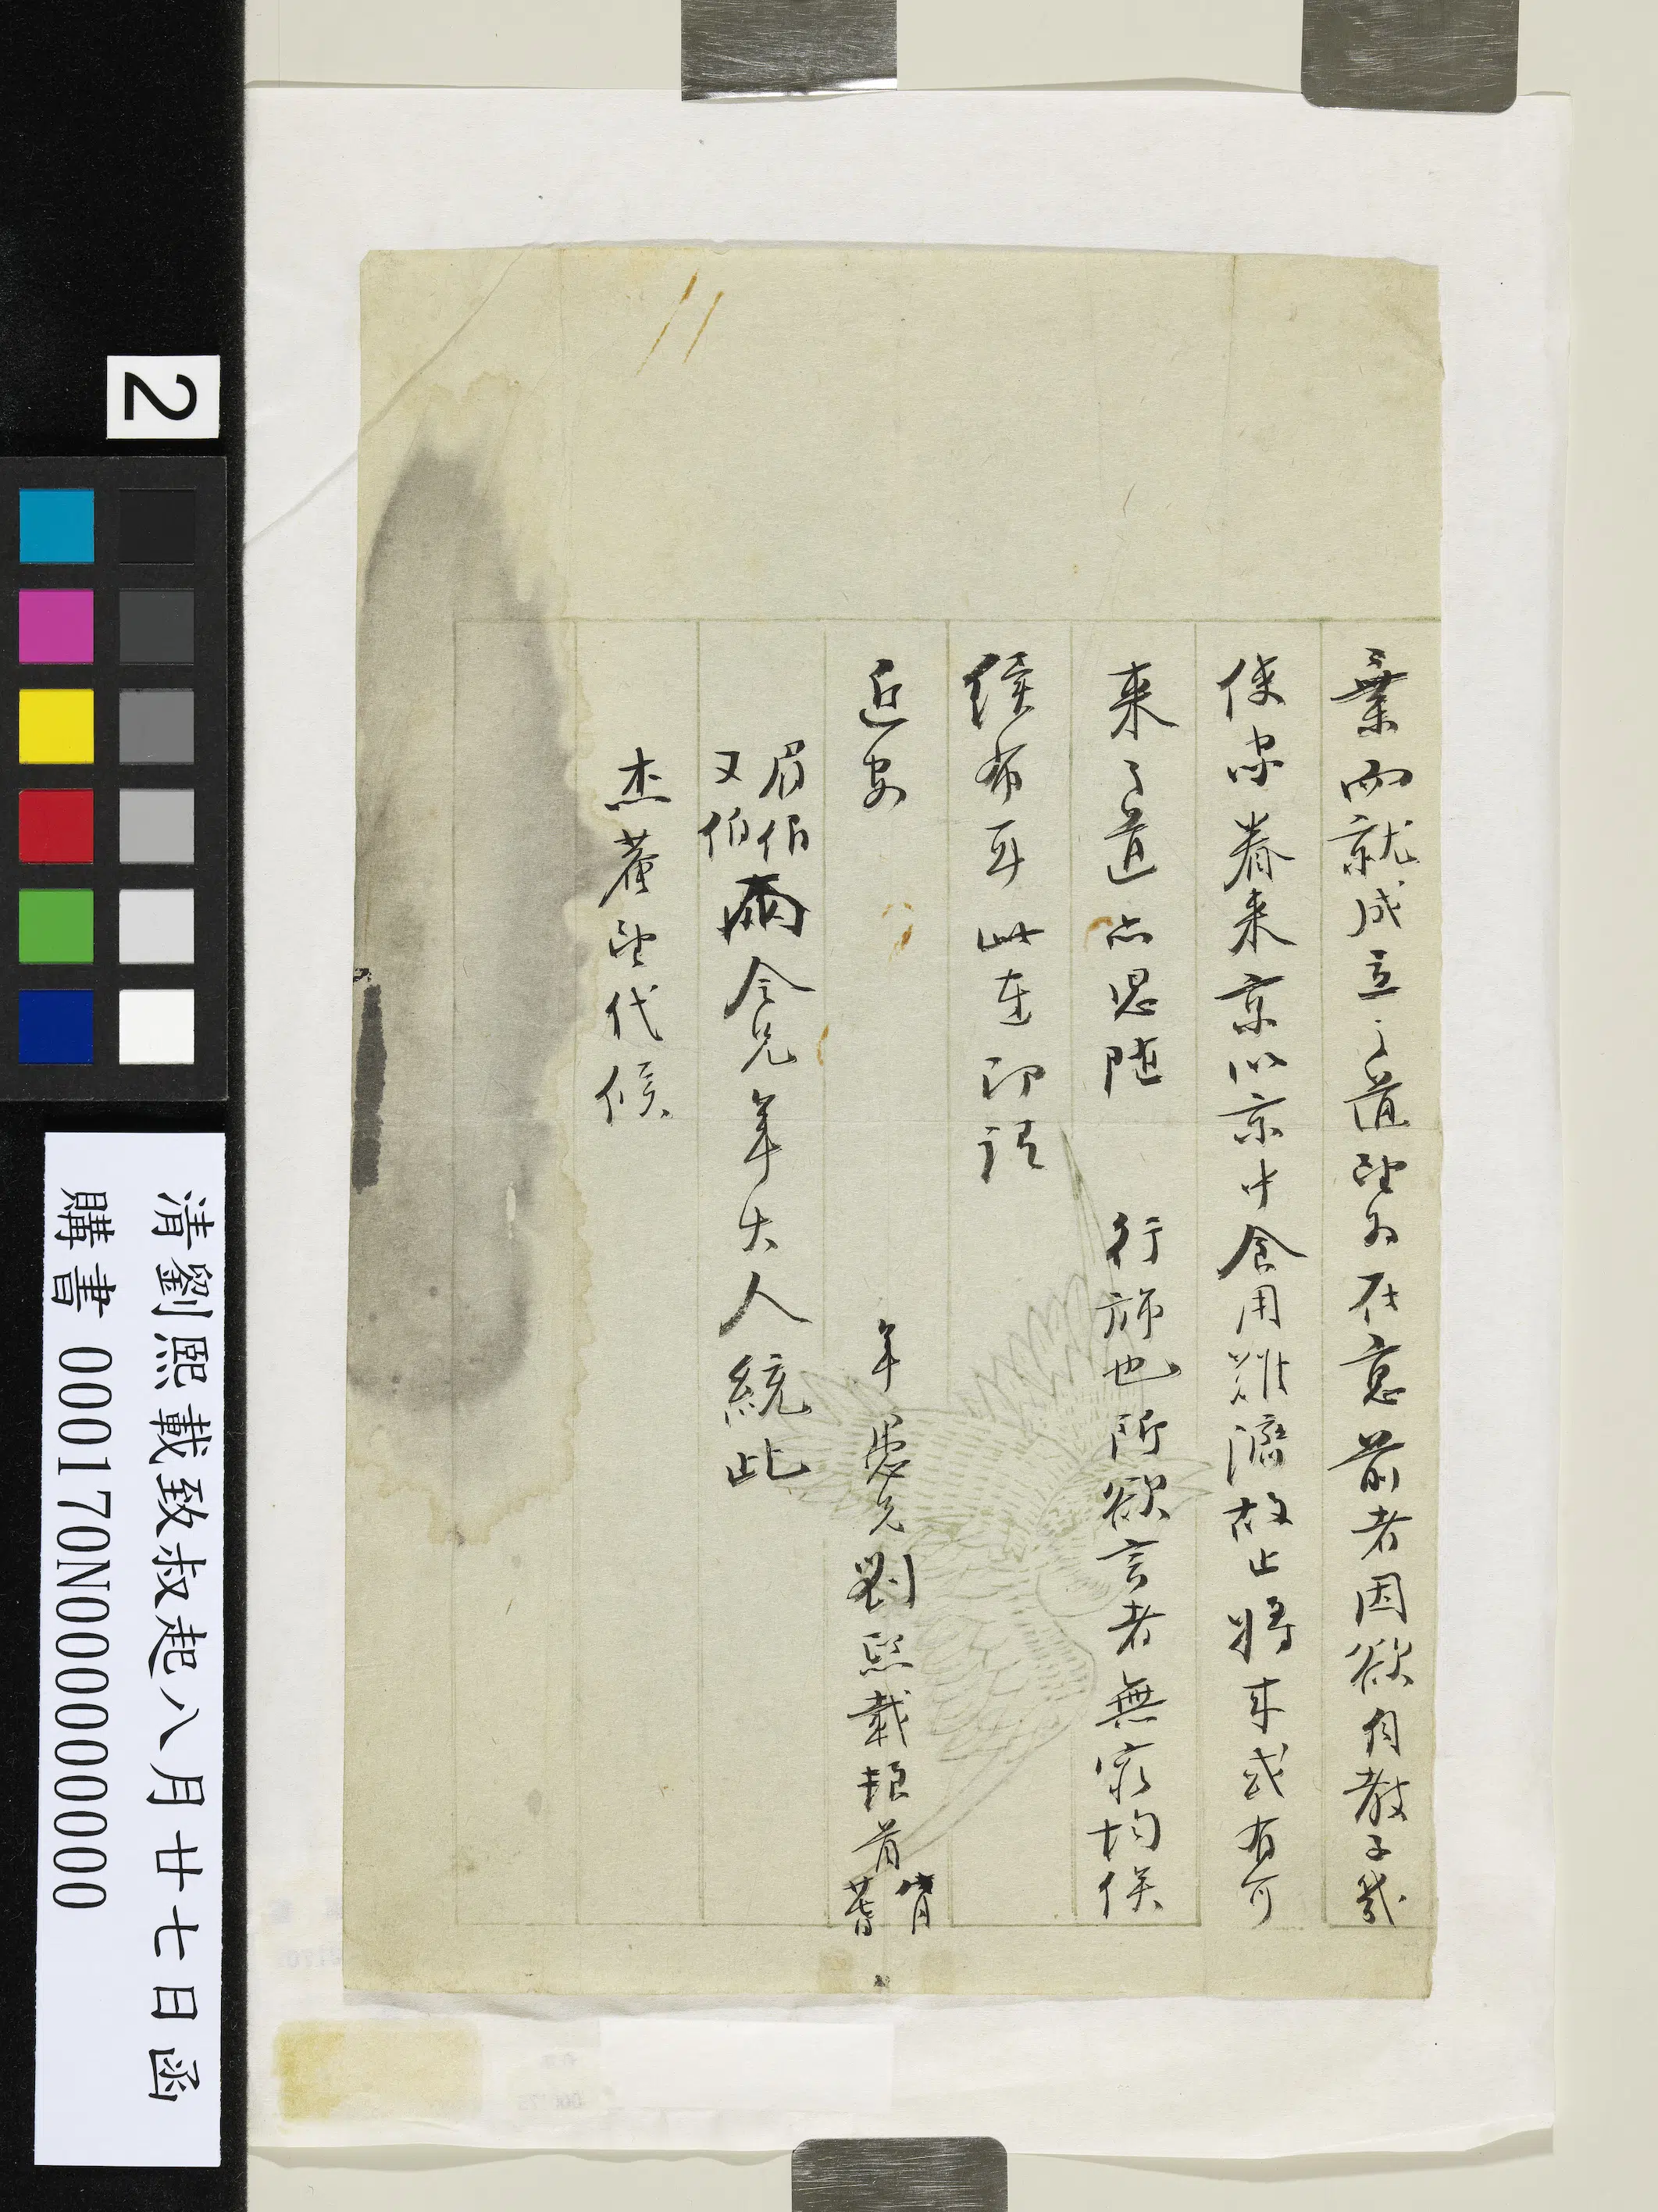 業而就成立之道望為在意前者因欲自教子幾
使家眷來京以京中食用難濟故止將來或有可
來之道亦思隨　行旆也所欲言者無窮均俟
續布耳此達即請
近安
年愚兄劉熙載頓首
眉伯
又伯
兩令兄年大人統此
杰菴望代候
2
清劉熙載致叔起八月廿七日函
購書 000170N000000000